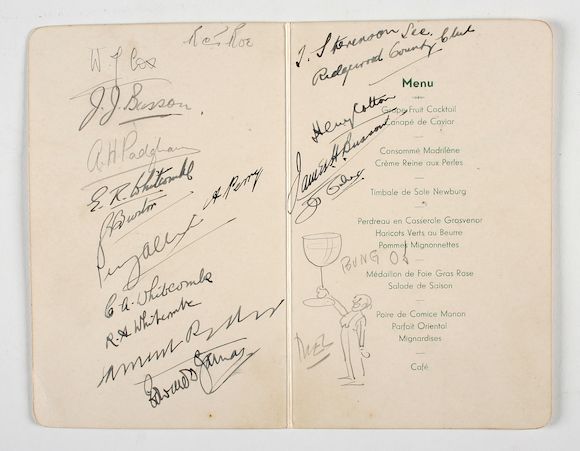 W. J. Cox
J. J. Busson
A. H. Padgham
E. R. Whitcombe
J. Burton
A Perry
Percy Alliss
C. A. Whitcombe
R. A. Whitcombe
Ridgewood County Club
Menu
Henry Cotton
Grape Fruit Cocktail
Canapé de Caviar
James H. Busson
Consommé Madrilène
Crème Reine aux Perles
Timbale de Sole Newburg
Perdreau en Casserole Grosvenor
Haricots Verts au Beurre
Pommes Mignonnettes
BUNG O
Médaillon de Foie Gras Rose
Salade de Saison
Poire de Comice Manon
Parfait Oriental
Mignardises
Café